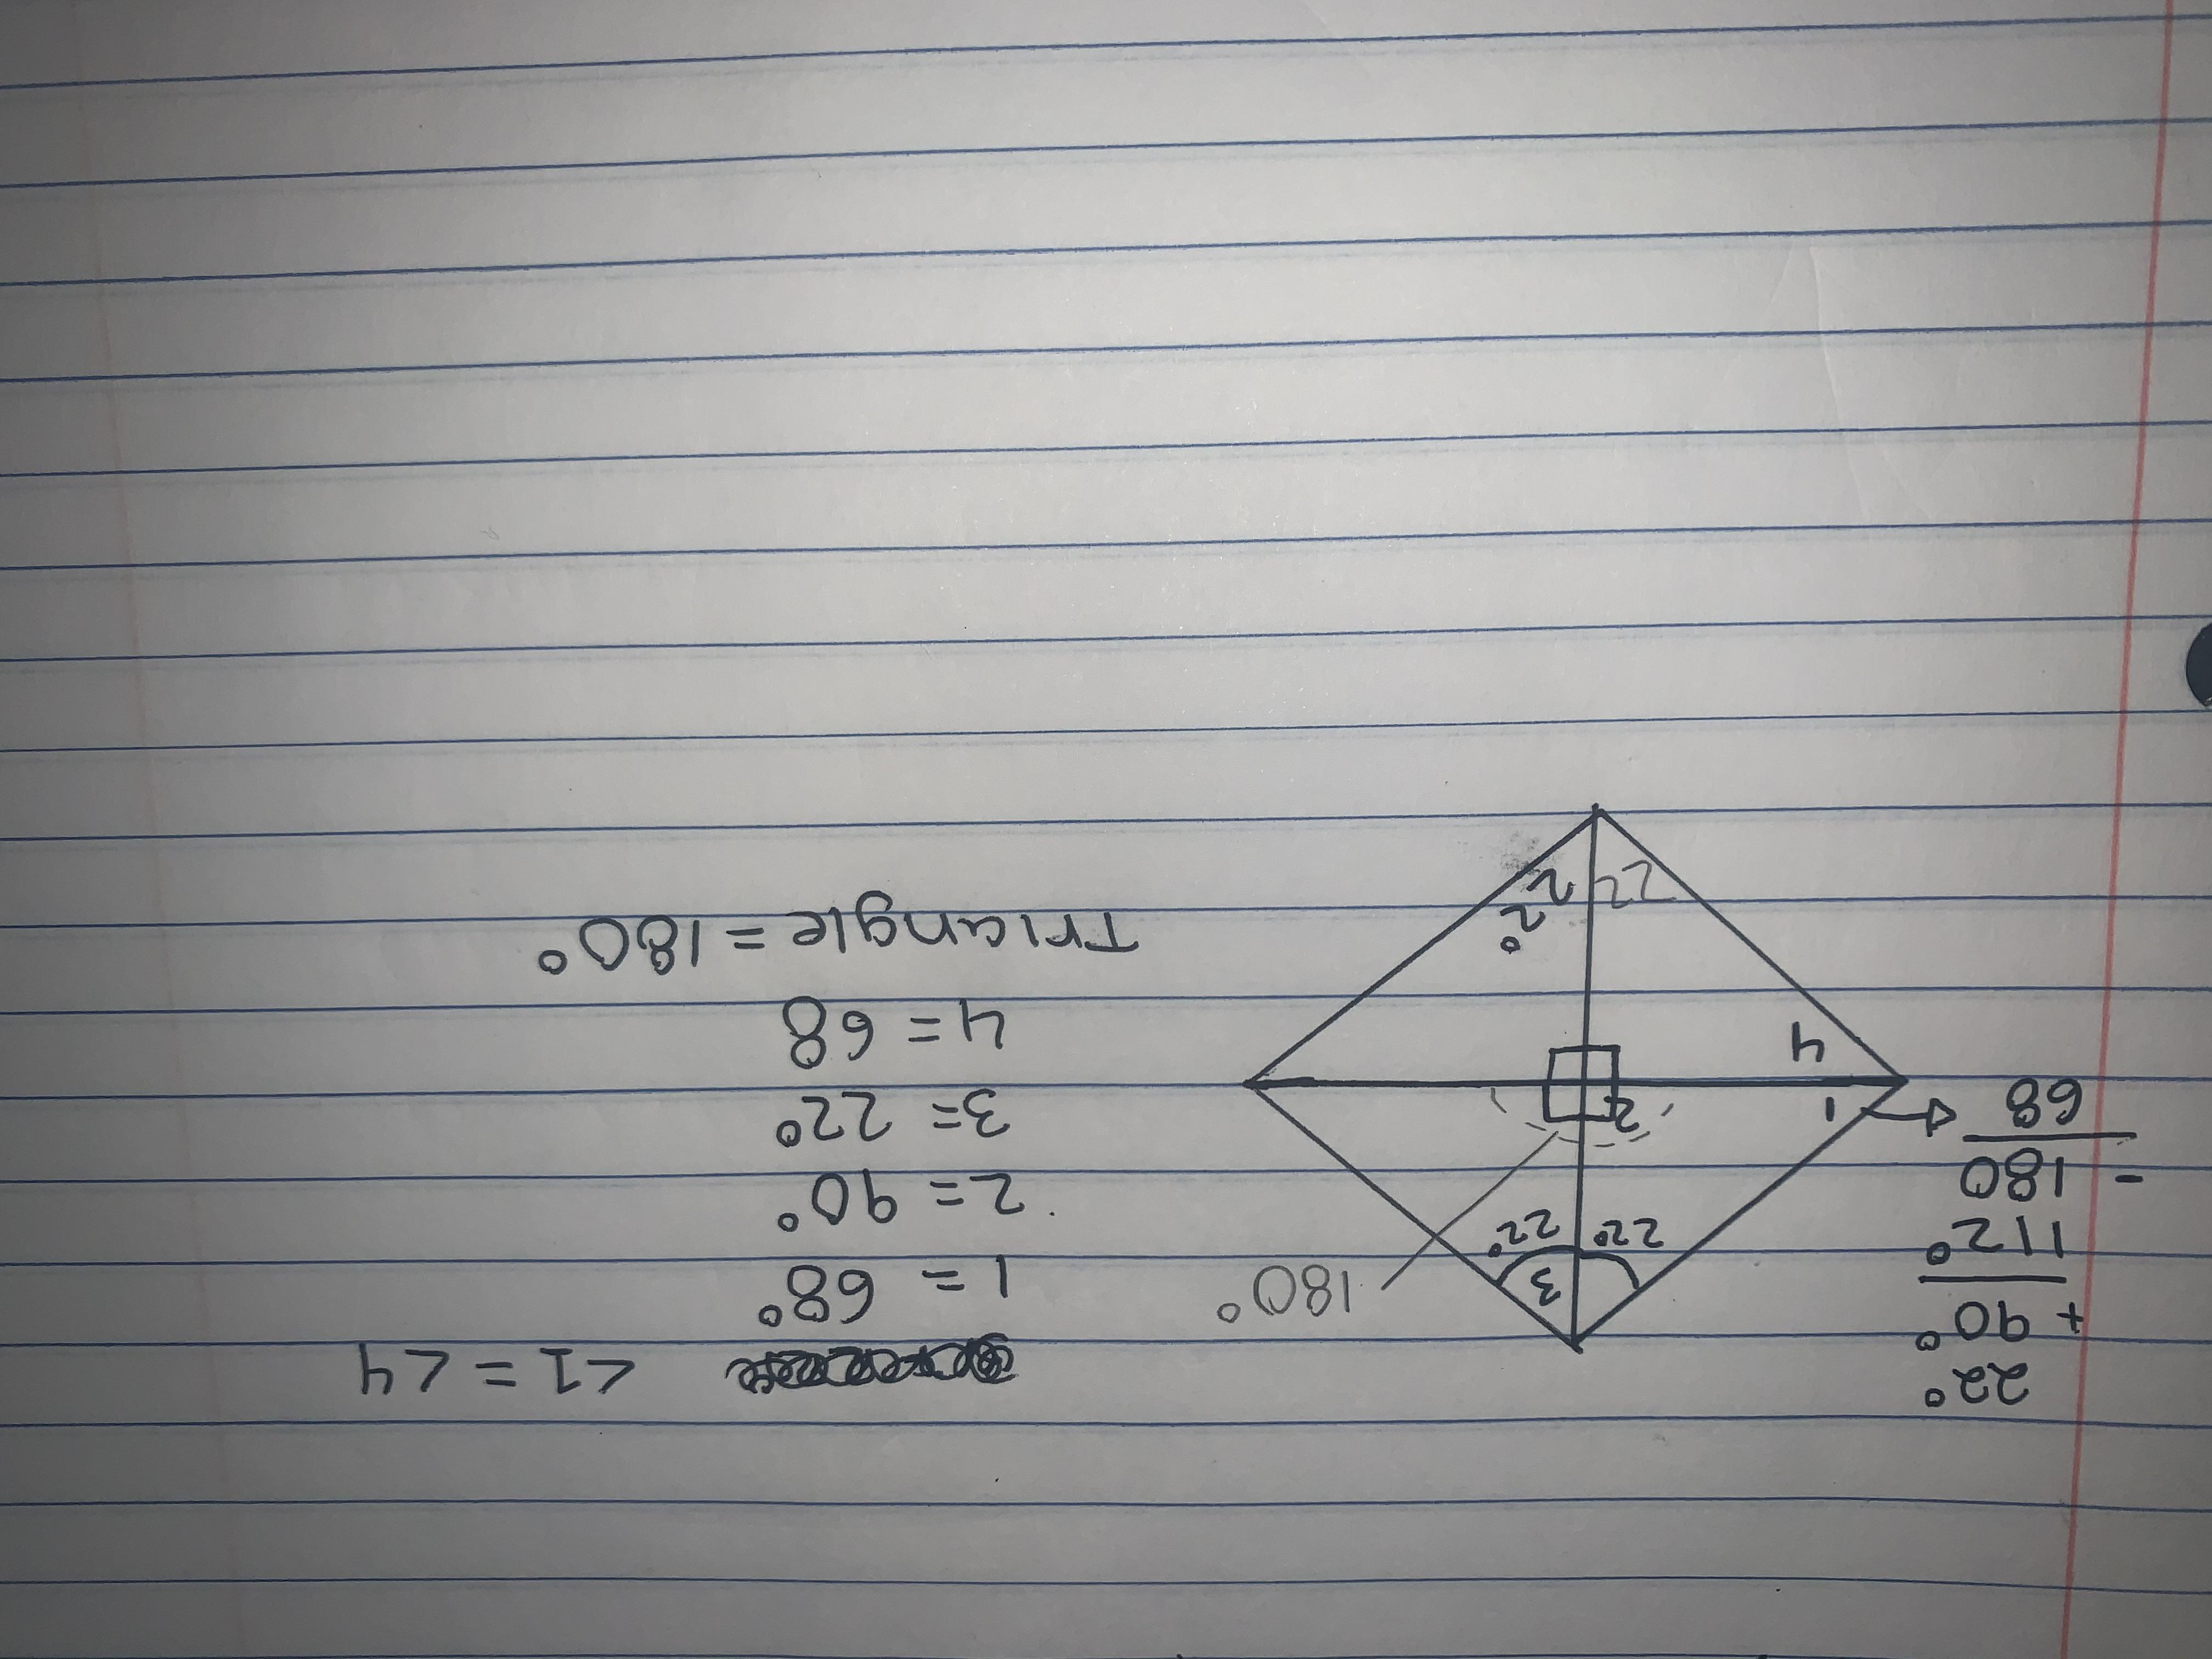 22°
+ 90°
112°
- 180
68
3
22° 22°
180°
1
2
4
22
22°
<1 = <4
1 = 68°
2 = 90°
3 = 22°
4 = 68
Triangle = 180°